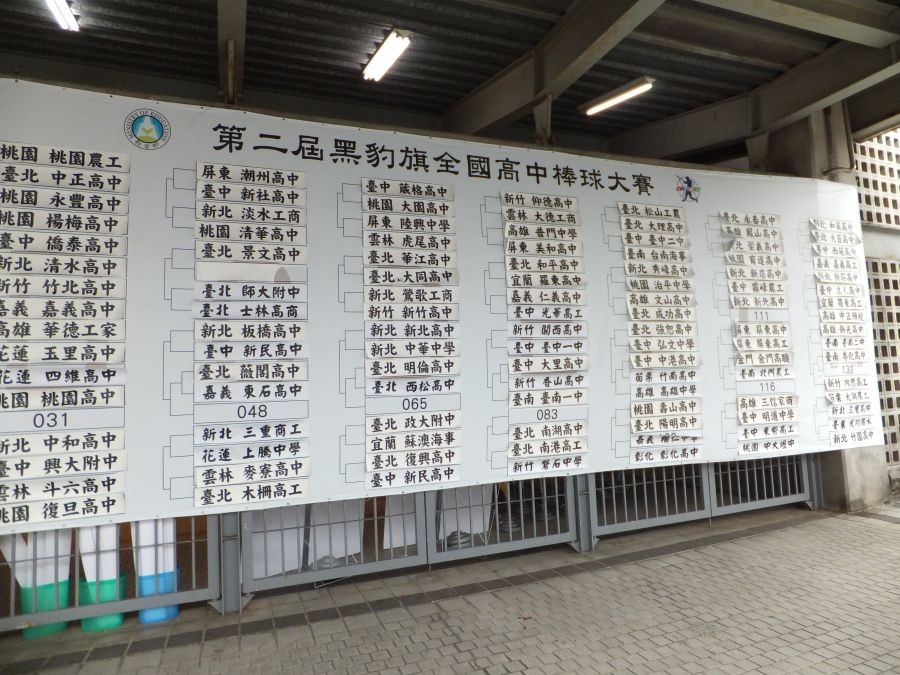 第二屆黑豹旗全國高中棒球大賽
MINISTRY OF EDUCATION
桃園 桃園農工
臺北 中正高中
桃園 永豐高中
桃園 楊梅高中
臺中 僑泰高中
新北 清水高中
新竹 竹北高中
嘉義 嘉義高中
高雄 華德工家
花蓮 玉里高中
花蓮 四維高中
桃園 桃園高中
031
新北 中和高中
臺中 興大附中
雲林 斗六高中
桃園 復旦高中
屏東 潮州高中
臺中 新社高中
新北 淡水工商
桃園 清華高中
臺北 景文高中
臺北 師大附中
臺北 士林高商
新北 板橋高中
臺中 新民高中
臺北 薇閣高中
嘉義 東石高中
048
新北 三重商工
花蓮 上騰中學
雲林 麥寮高中
臺北 木柵高工
臺中 葳格高中
桃園 大園高中
屏東 陸興中學
雲林 虎尾高中
臺北 華江高中
臺北 大同高中
新北 鶯歌工商
新竹 新竹高中
新北 新北高中
新北 中華中學
臺北 明倫高中
臺北 西松高中
065
臺北 政大附中
宜蘭 蘇澳海事
臺北 復興高中
臺中 新民高中
新竹 仰德高中
雲林 大德工商
高雄 普門中學
屏東 美和高中
臺北 和平高中
宜蘭 羅東高中
嘉義 仁義高中
臺中 光華高工
新竹 關西高中
臺中 臺中一中
臺中 大里高中
新竹 香山高中
臺南 臺南一中
083
臺北 南湖高中
臺北 南港高工
新竹 磐石中學
臺北 松山工農
臺北 大理高中
臺中 臺中二中
臺南 台南海事
新北 秀峰高中
桃園 治平中學
高雄 文山高中
臺北 成功高中
臺北 強恕高中
臺中 弘文中學
臺中 中港高中
苗栗 竹南高中
高雄 高雄中學
桃園 壽山高中
臺北 陽明高中
嘉義
彰化 彰化高中
臺北 永春高中
高雄 鳳山高中
桃園 育達高中
新北 新店高中
臺中 霧峰農工
新北 新北高中
111
屏東 屏東高中
屏東 屏東高工
金門 金門高職
臺南 北門農工
116
高雄 三信家商
臺中 明道中學
臺中 東勢高工
桃園 中大壢中
彰化 和美高中
臺北 大直高中
臺中 西苑高中
嘉義 嘉義高工
宜蘭 羅東高工
高雄 中正預校
臺南 臺南二中
132
新竹 內思高工
新北 三重高中
新北 竹圍高中